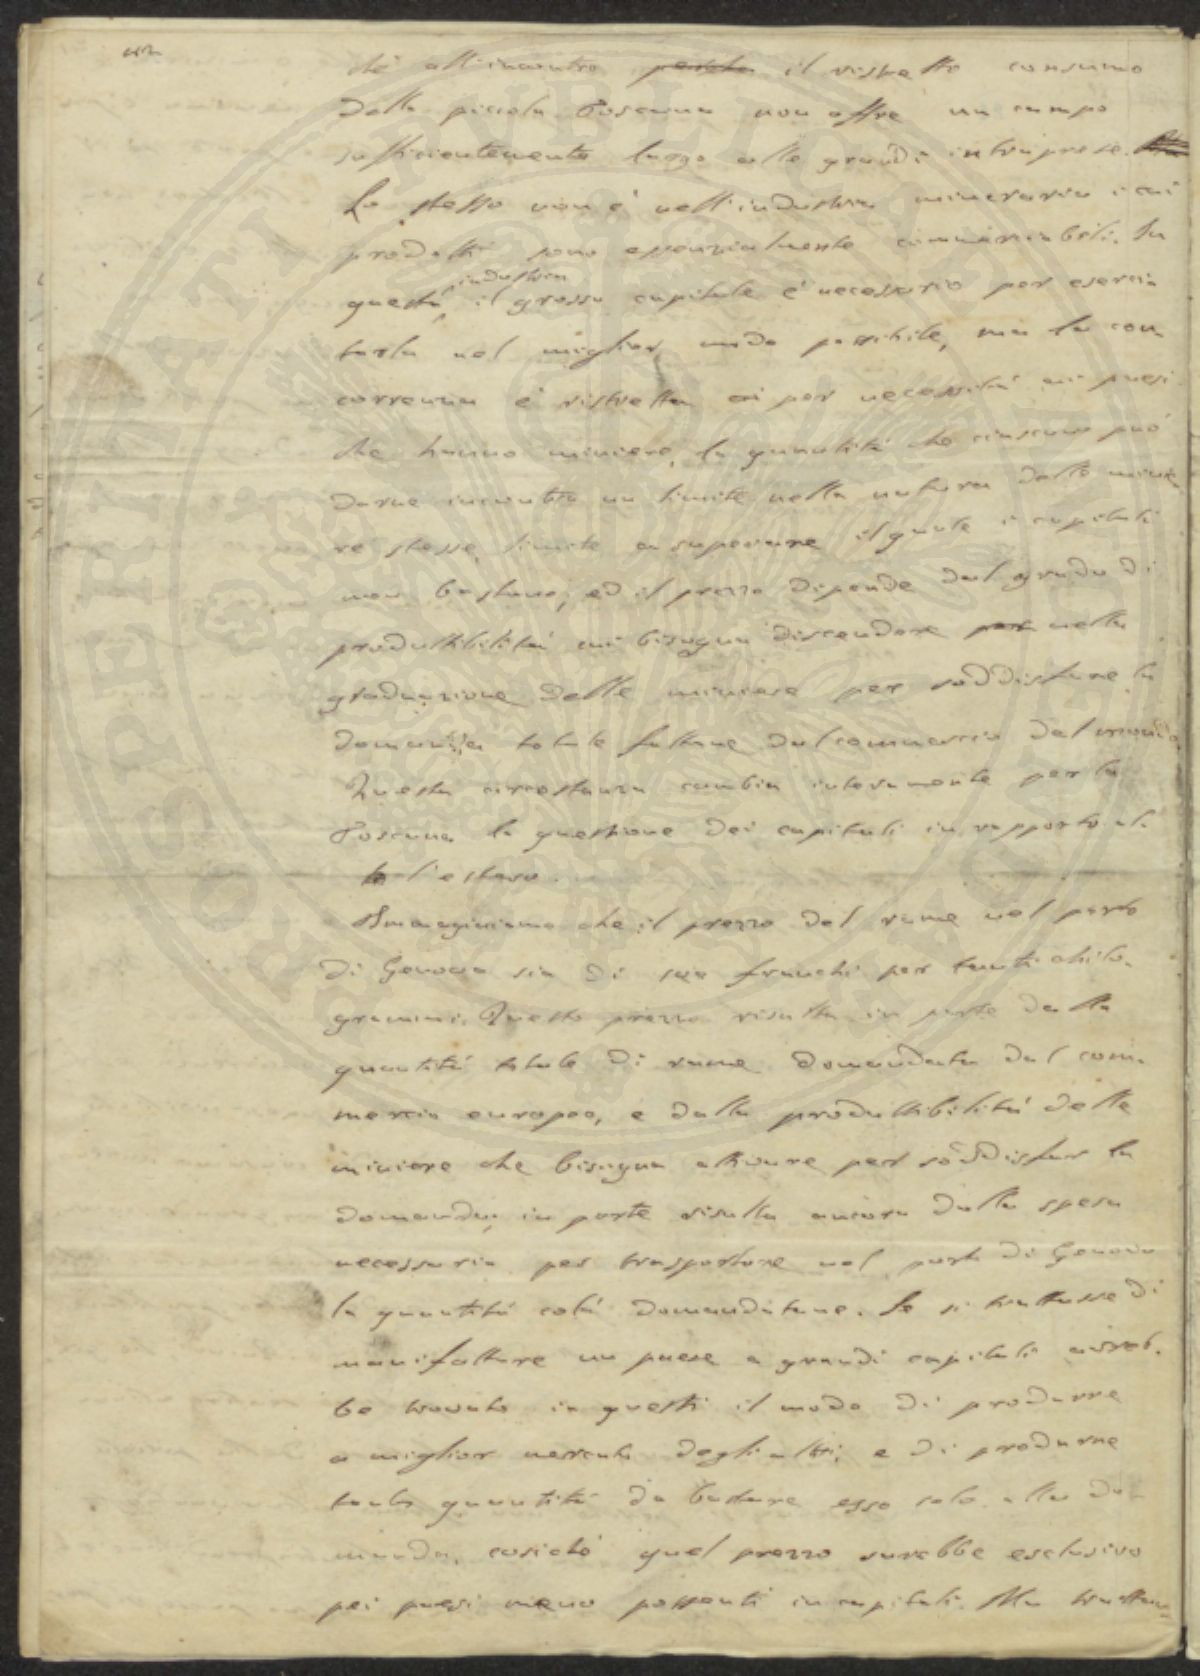 chè all'incontro ~~perchè~~ il ristretto consumo
della piccola Toscana non offre un campo
sufficientemente largo alle grandi intraprese.
Lo stesso non è nell'industria mineraria i cui
prodotti sono essenzialmente commerciabili. In
questa industria, il grosso capitale è necessario per eserci
tarla nel miglior modo possibile, ma la con-
correnza è ristretta per necessità ai paesi
che hanno miniere, la quantità che ciascuno può
darne incontra un limite nella natura delle minie
re stesse, limite a superare il quale i capitali
non bastano, ed il prezzo dipende dal grado di
produttibilità cui bisogna discendere ~~per~~ nella
graduazione delle miniere per soddisfare la
domanda totale fattane dal commercio del mondo.
Questa circostanza cambia interamente per la
Toscana la questione dei capitali in rapporto al-
l'estero.
Immaginiamo che il prezzo del rame nel porto
di Genova sia di franchi per tanti chilo-
grammi. Questo prezzo risulta in parte dalla
quantità totale di rame domandata dal com-
mercio europeo, e dalla produttibilità delle
miniere che bisogna attivare per soddisfar la
domanda, in parte risulta ancora dalla spesa
necessaria per trasportare nel porto di Genova
la quantità colà domandatane. Se si trattasse di
manifatture un paese a grandi capitali avreb-
be trovato in questi il modo di produrre
a miglior mercato degli altri, e di produrne
tanta quantità da bastare esso solo alla do-
manda, cosichè quel prezzo sarebbe esclusivo
pei paesi meno possenti in capitali. Ma trattan-